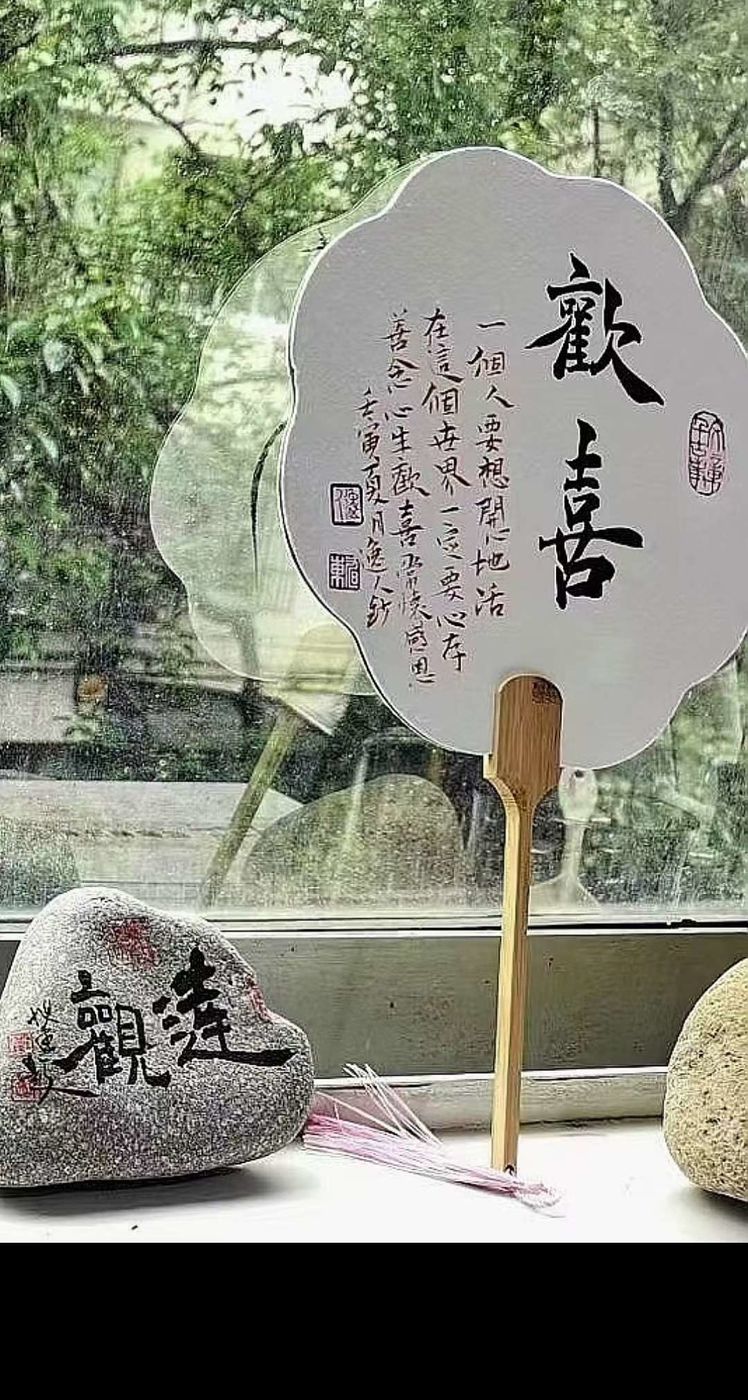 歡喜
一個人要想開心地活
在這個世界一定要心存
善念心生歡喜常懷感恩
壬寅夏月逸人鈔
達觀